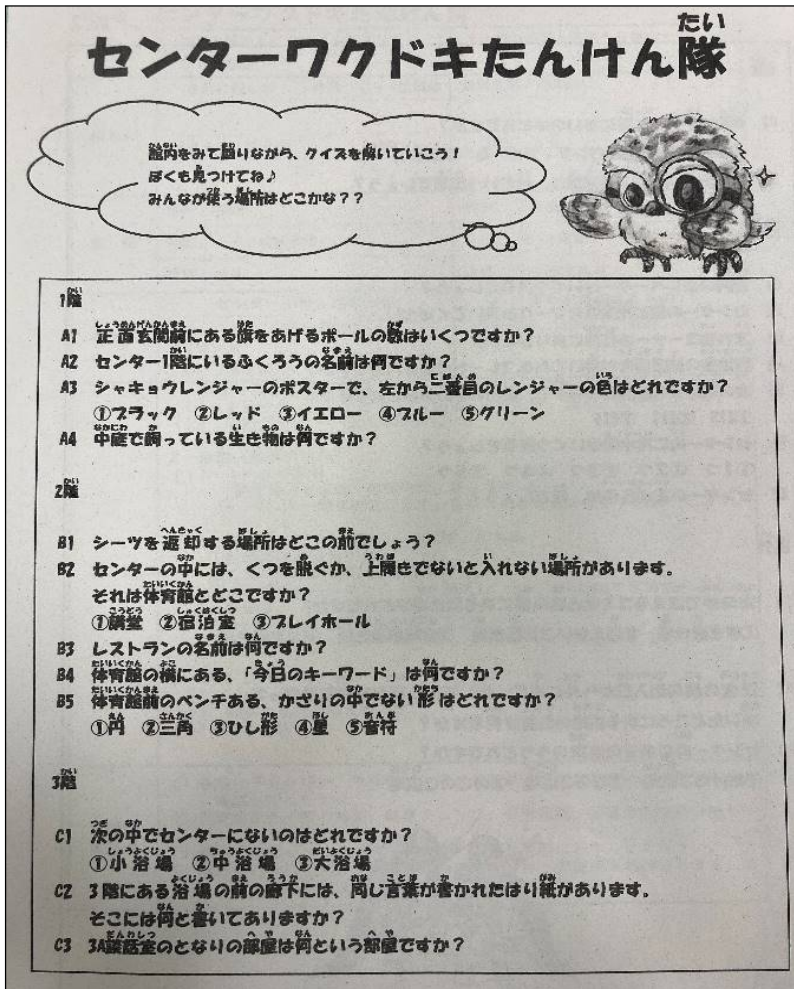 センターワクドキたんけん隊
館内をみて回りながら、クイズを解いていこう！
ぼくも見つけてね♪
みんなが使う場所はどこかな？？
1階
A1 正面玄関前にある旗をあげるポールの数はいくつですか？
A2 センター1階にいるふくろうの名前は何ですか？
A3 シャキョウレンジャーのポスターで、左から二番目のレンジャーの色はどれですか？
①ブラック ②レッド ③イエロー ④ブルー ⑤グリーン
A4 中庭で飼っている生き物は何ですか？
2階
B1 シーツを返却する場所はどこの前でしょう？
B2 センターの中には、くつを脱ぐか、上履きでないと入れない場所があります。
それは体育館とどこですか？
①講堂 ②宿泊室 ③プレイホール
B3 レストランの名前は何ですか？
B4 体育館の横にある、「今日のキーワード」は何ですか？
B5 体育館前のベンチある、かざりの中でない形はどれですか？
①円 ②三角 ③ひし形 ④星 ⑤音符
3階
C1 次の中でセンターにないのはどれですか？
①小浴場 ②中浴場 ③大浴場
C2 3階にある浴場の前の廊下には、同じ言葉が書かれたはり紙があります。
そこには何と書いてありますか？
C3 3A談話室のとなりの部屋は何という部屋ですか？